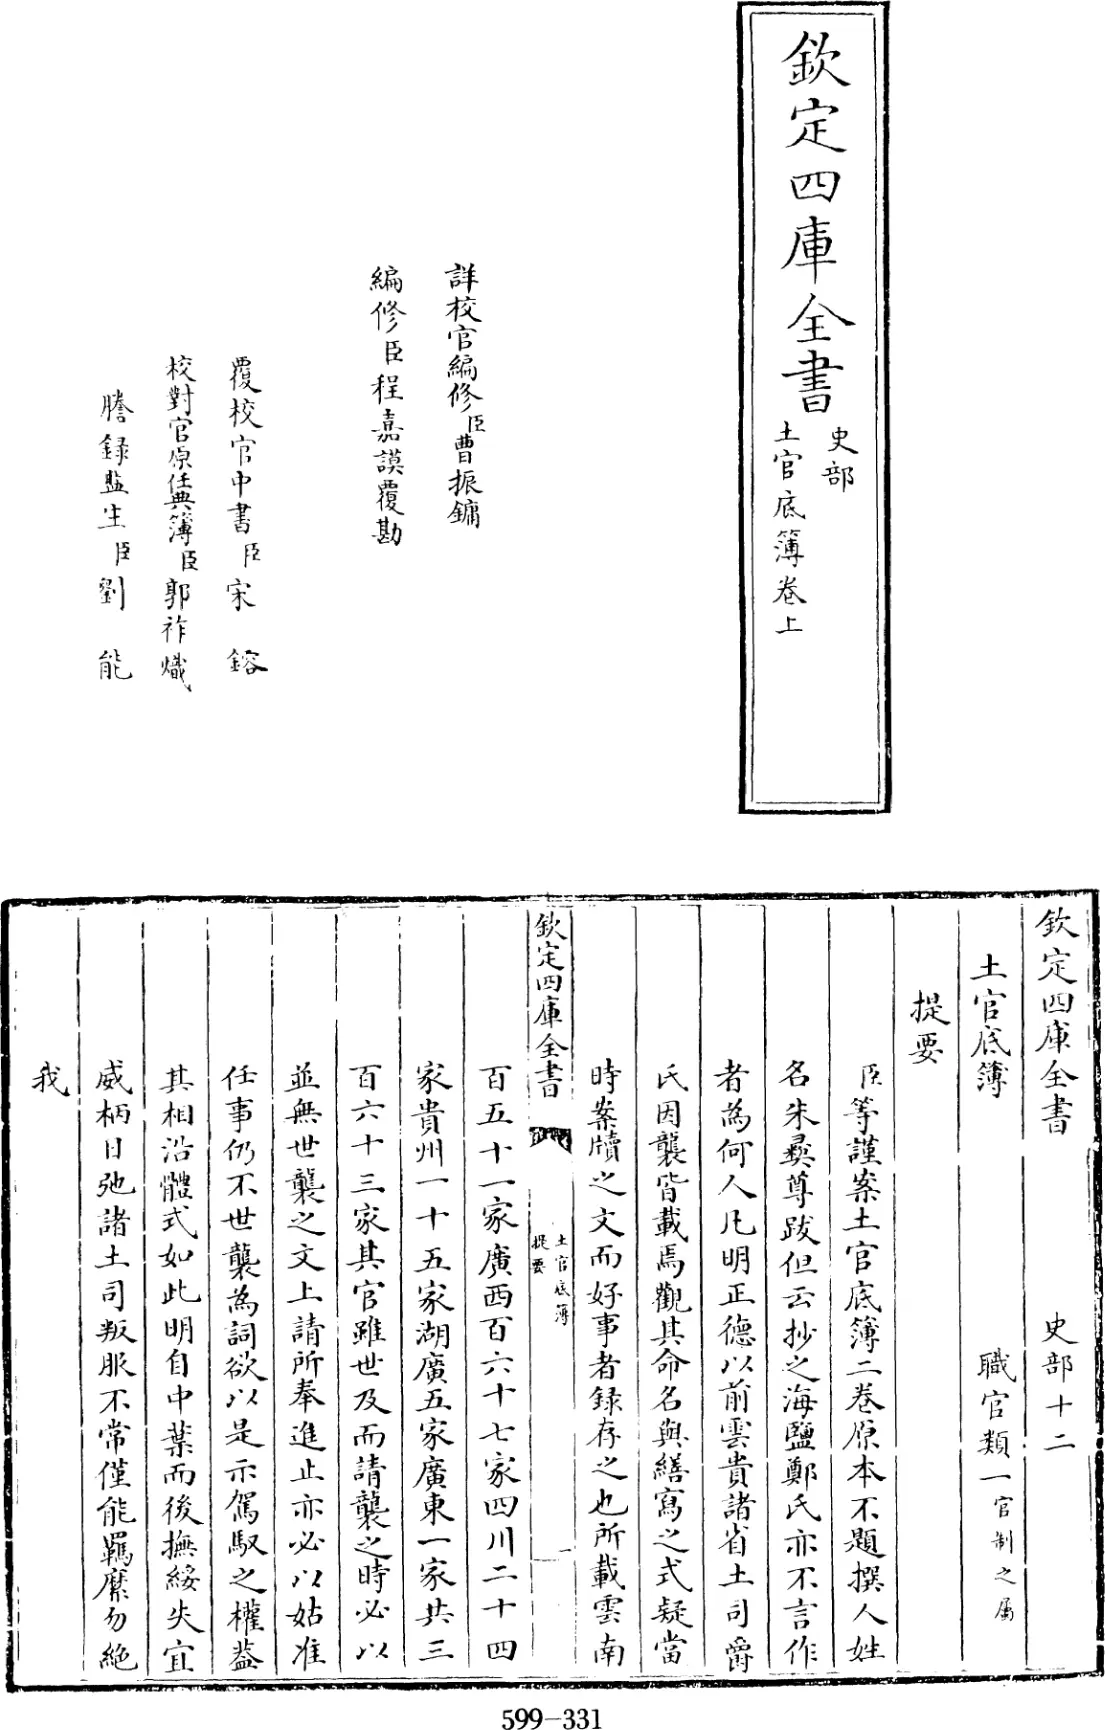 欽定四庫全書
史部
土官底簿卷上
詳校官編修臣曹振鏞
編修臣程嘉謨覆勘
覆校官中書臣宋鎔
校對官原任典簿臣郭祚熾
謄録監生臣劉能
欽定四庫全書 史部十二
土官底簿 職官類一官制之屬
提要
臣等謹案土官底簿二卷原本不題撰人姓
名朱彝尊跋但云抄之海鹽鄭氏亦不言作
者為何人凡明正德以前雲貴諸省土司爵
氏因襲皆載焉觀其命名與繕寫之式疑當
時案牘之文而好事者録存之也所載雲南
欽定四庫全書
土官底簿
提要
一
百五十一家廣西百六十七家四川二十四
家貴州一十五家湖廣五家廣東一家共三
百六十三家其官雖世及而請襲之時必以
並無世襲之文上請所奉進止亦必以姑准
任事仍不世襲為詞欲以是示駕馭之權葢
其相沿體式如此明自中葉而後撫綏失宜
威柄日弛諸土司叛服不常僅能羈縻勿絶
我
599-331